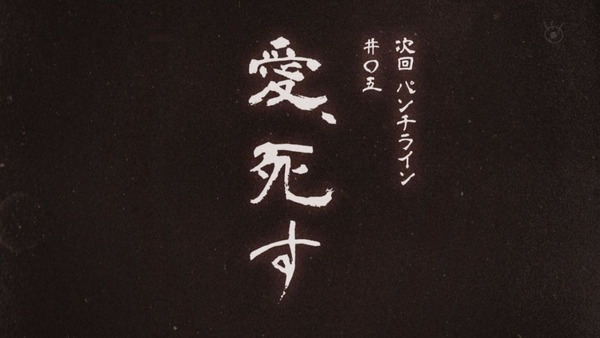 次回 パンチライン
#〇五
愛、死す